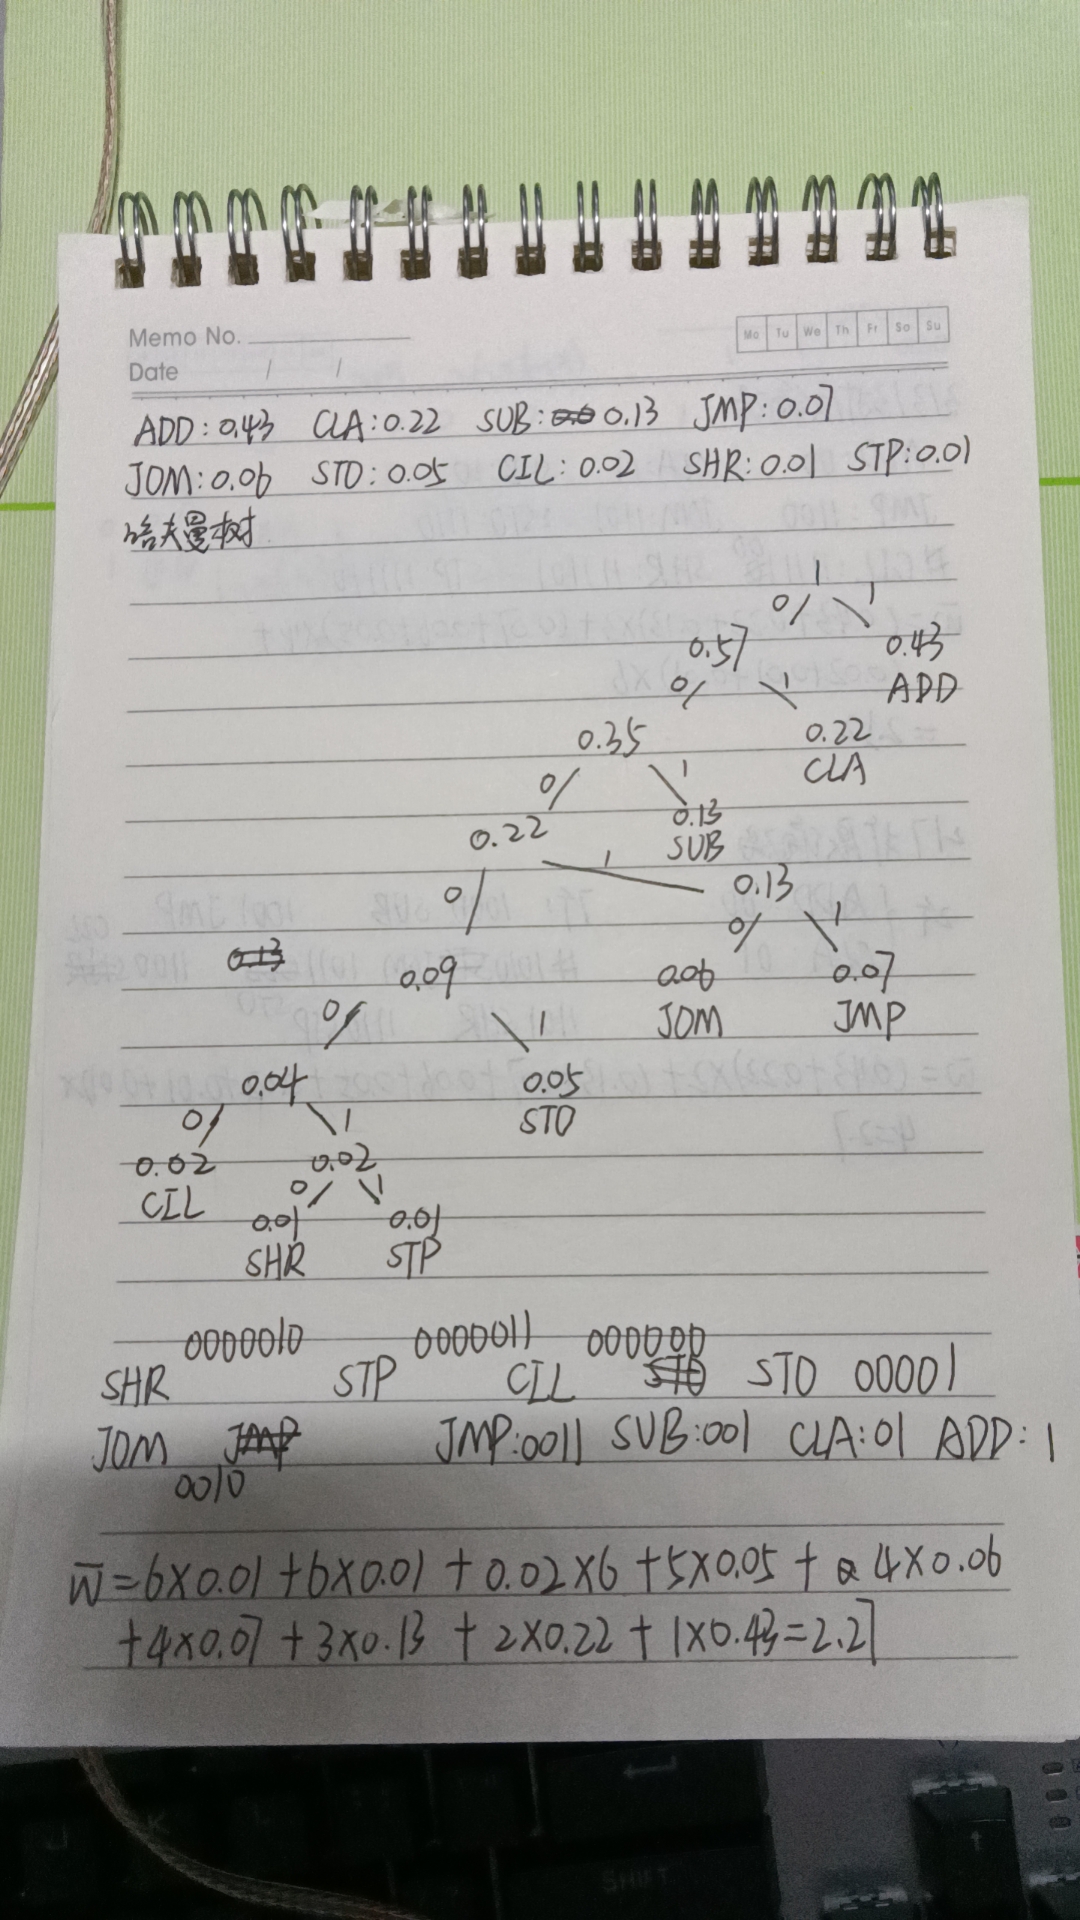 Memo No.
Mo Tu We Th Fr Sa Su
Date / /
ADD:0.43 CLA:0.22 SUB:0.13 JMP:0.07
JOM:0.06 STO:0.05 CIL:0.02 SHR:0.01 STP:0.01
哈夫曼树
1
0 1
0.57 0.43
0 1 ADD
0.35 0.22
0 1 CLA
0.22 0.13
SUB
0 1 0.13
0 1
0.13 0.09 0.06 0.07
0 1 JOM JMP
0.04 0.05
0 1 STO
0.02 0.02
CIL 0 1
0.01 0.01
SHR STP
0000010 0000011 000000
SHR STP CIL STO STO 00001
JOM JMP JMP:0011 SUB:001 CLA:01 ADD:1
0010
W̅=6×0.01+6×0.01+0.02×6+5×0.05+4×0.06
+4×0.07+3×0.13+2×0.22+1×0.43=2.27
SHIFT